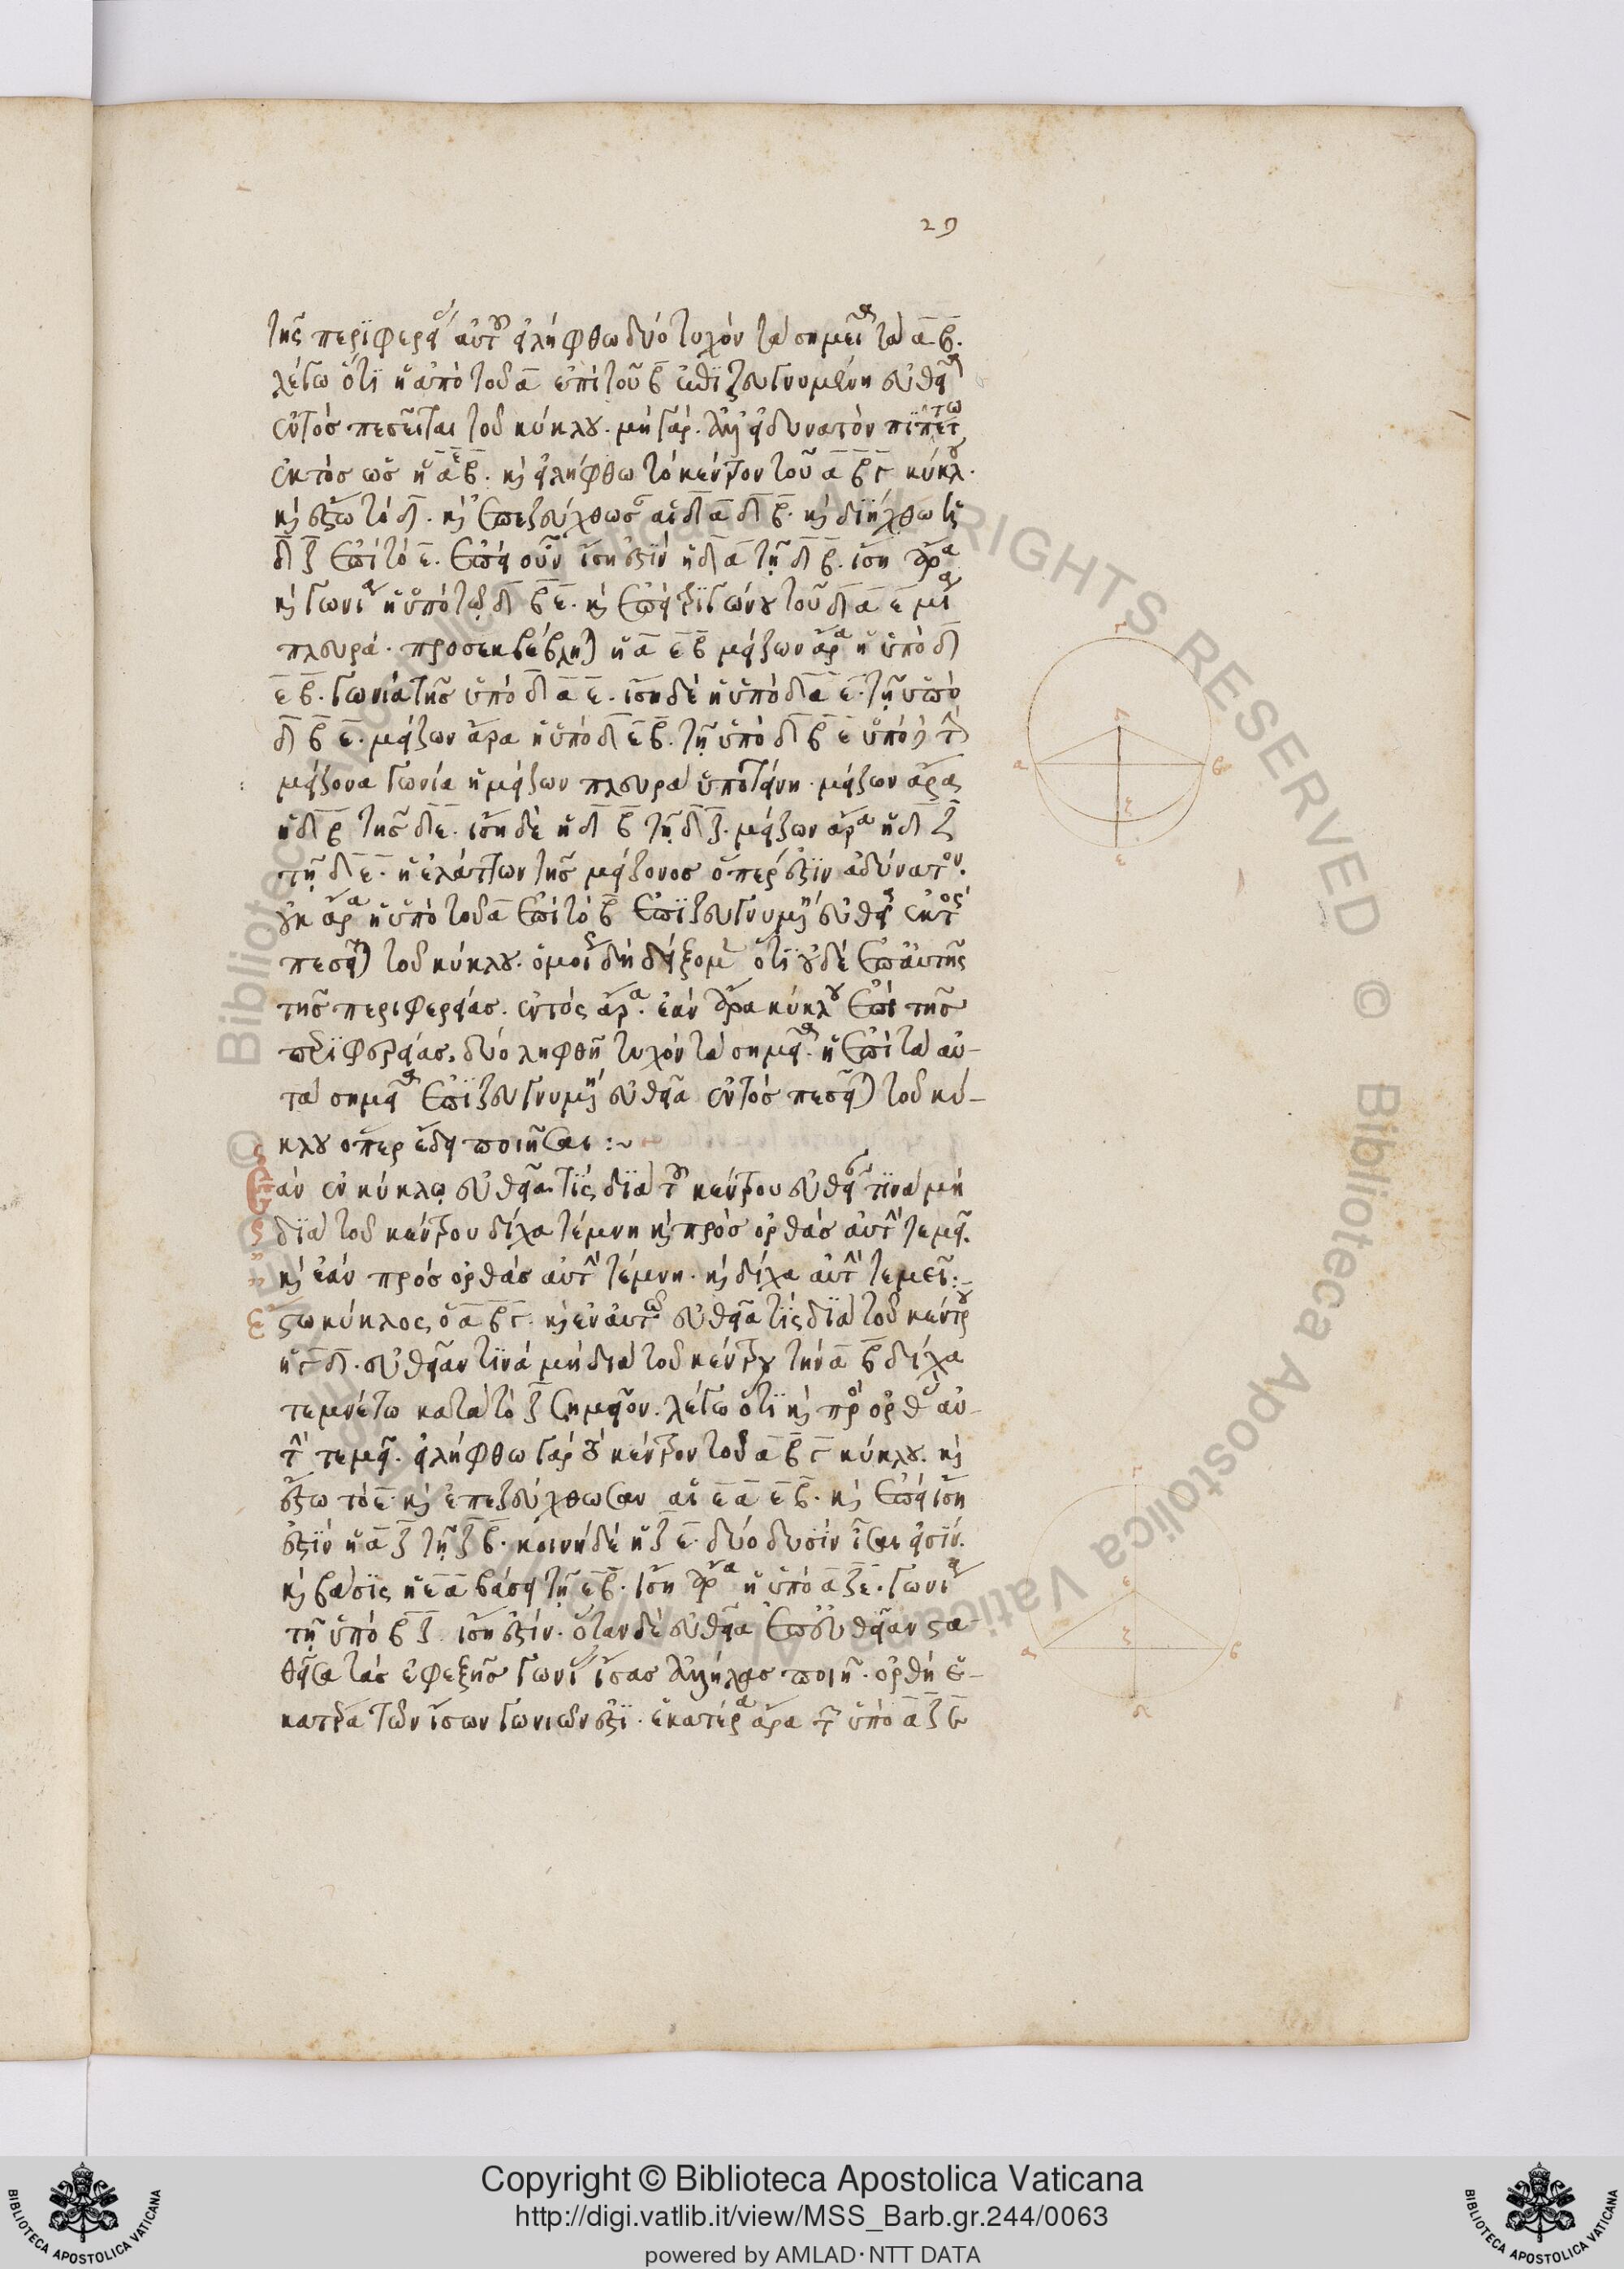 29
τῆς περϊφερεί αὐτοῦ εἰλήφθω δύο τυχόντα σημεῖα τὰ α β.
λέγω ὅτϊ ἡ ἀπὸ τοῦ α ἐπὶ τοῦ β ἐπιζευγνυμένη εὐθεῖα
ἐντὸσ πεσεῖται τοῦ κύκλου. μὴ γάρ. ἀλλ' εἰ δυνατὸν πϊπτέτω
ἐκτὸσ ὡσ ἡ α ε β. καὶ εἰλήφθω τὸ κέντρον τοῦ α β γ κύκλου.
καὶ ἔστω τὸ δ. καὶ ἐπεζεύχθωσ αἱ δ α δ β. καὶ διήχθω ἡ
δ ζ ἐπὶ τὸ ε. ἐπεὶ οὖν ἴση ἐστϊν ἡ δ α τῇ δ β. ἴση ἄρα
καὶ γωνία ἡ ὑπὸ τῶ δ β ε. καὶ ἐπεὶ τρϊγώνου τοῦ δ α ε μία
πλευρά. προσεκβέβληται ἡ α ε β μείζων ἄρα ἡ ὑπὸ δ
ε β. γωνία τῆσ ὑπὸ δ α ε. ἴση δὲ ἡ ὑπὸ δ α ε. τῇ ὑπὸ
δ β ε. μείζων ἄρα ἡ ὑπὸ δ ε β. τῇ ὑπὸ δ β ε ὑπὸ δὲ τὴν
μείζονα γωνία ἡ μείζων πλευρὰ ὑποτείνη. μείζων ἄρα
ἡ δ β τῆσ δ ε. ἴση δὲ ἡ δ β τῇ δ ζ. μείζων ἄρα ἡ δ ζ
τῇ δ ε. ἡ ἐλάττων τῆσ μείζονοσ ὅπερ ἐστϊν ἀδύνατον.
οὐκ ἄρα ἡ ὑπὸ τοῦ α ἐπὶ τὸ β ἐπϊζευγνυμένη εὐθεῖα ἐκτὸς
πεσεῖται τοῦ κύκλου. ὁμοίως δὴ δείξομεν ὅτϊ οὐδὲ ἐπ αὐτῆς
τῆσ περιφερείασ. ἐντὸς ἄρα. ἐὰν ἄρα κύκλου ἐπὶ τῆσ
περϊφερείασ. δύο ληφθῆ τυχόντα σημεῖα. ἡ ἐπὶ τὰ αὐ-
τὰ σημεῖα ἐπϊζευγνυμένη εὐθεῖα ἐντὸσ πεσεῖται τοῦ κύ-
κλου ὅπερ ἔδει ποιῆσαι :~
Εὰν ἐν κύκλῳ εὐθεῖα τϊς δϊὰ τοῦ κέντρου εὐθεῖαν τϊνὰ μὴ
δϊὰ τοῦ κέντρου δίχα τέμνη καὶ πρὸσ ὀρθάσ αὐτὴν τεμεῖ.
καὶ ἐὰν πρὸσ ὀρθάσ αὐτὴν τέμνη. καὶ δίχα αὐτὴν τεμεῖ:-
Εστω κύκλος ὁ α β γ. καὶ ἐν αὐτῶ εὐθεῖα τϊς δϊὰ τοῦ κέντρου
ἡ γ δ. εὐθεῖαν τϊνὰ μὴ διὰ τοῦ κέντρου τὴν α β δίχα
τεμνέτω κατὰ τὸ ζ σημεῖον. λέγω ὅτϊ καὶ πρὸς ὀρθὰς αὐ-
τὴν τεμεῖ. εἰλήφθω γὰρ τὸ κέντρον τοῦ α β γ κύκλου. καὶ
ἔστω τὸ ε. καὶ ἐπεζεύχθωσαν αἱ ε α ε β. καὶ ἐπεὶ ἴση
ἐστϊν ἡ α ζ τῇ ζ β. κοινὴ δὲ ἡ ζ ε. δύο δυσὶν ἴσαι εἰσϊν.
καὶ βάσϊς ἡ ε α βάσει τῇ ε β. ἴση ἄρα ἡ ὑπὸ α ζ ε. γωνία
τῇ ὑπὸ β ζ. ἴση ἐστίν. ὅταν δὲ εὐθεῖα ἐπ εὐθεῖαν στα-
θεῖσα τὰσ ἐφεξῆσ γωνί ἴσασ ἀλλήλαισ ποιῆ. ὀρθὴ ἑ-
κατέρα τῶν ἴσων γωνιῶν ἐστϊ. ἑκατέρα ἄρα τῶν ὑπὸ α ζ ε
γ
δ
α
β
ζ
ε
γ
ε
α
ζ
β
δ
© Biblioteca Apostolica Vaticana ALL RIGHTS RESERVED
Copyright © Biblioteca Apostolica Vaticana
http://digi.vatlib.it/view/MSS_Barb.gr.244/0063
powered by AMLAD·NTT DATA
BIBLIOTECA APOSTOLICA VATICANA
BIBLIOTECA APOSTOLICA VATICANA